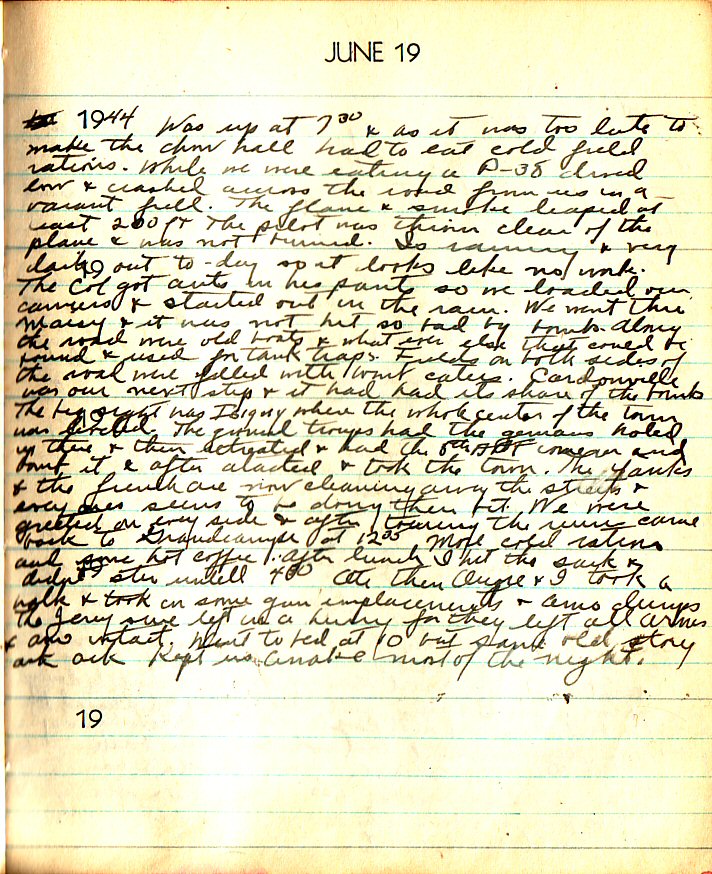 JUNE 19
1944 Was up at 7 30 & as it was too late to
make the chow hall had to eat cold field
rations. While we were eating a P-38 dived
low & crashed across the road from us in a
vacant field. The flame & smoke leaped at
least 200 ft The pilot was thrown clear of the
plane & was not burned. Is rainy & very
dark out to-day so it looks like no work.
The Col got ants in his pants so we loaded our
& started out in the rain. We went thru
Maisy & it was not hit so bad by bombs. Along
the road were old boats & what ever else that could be
found & used for tank traps. Fields on both sides of
the road were filled with craters. Cardonville
was our next stop & it had had its share of the bombs
The big sight was Isigny where the whole center of the town
was leveled. The ground troups had the germans holed
in there & then retreated & had the 8th AF come over and
bomb it & after attacked & took the town. The Yanks
& the french are now cleaning away the streets &
every one seems to be doing their bit. We were
greeted on every side & after touring the ruins came
back to Grandcamp at 12 00 More cold rations
and some hot coffee. After lunch I hit the sack &
didnt stir untill 4 00 Ate then & I took a
walk & took in some gun implacements & amo dumps
the Jerry's left in a hurry for they left all arms
& amo intact. Went to bed at 10 but same old story
ack ack Kept us awake most of the night.
19